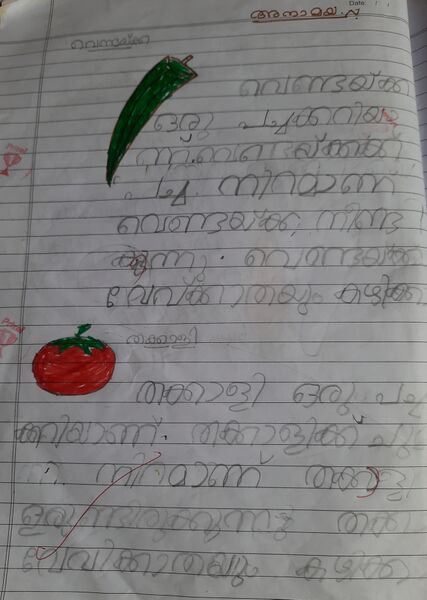 Date:
അനാമയ. എസ്
വെണ്ടയ്ക്ക
വെണ്ടയ്ക്ക
ഒരു പച്ചക്കറിയാ
ണ്. വെണ്ടയ്ക്കക്ക്
പച്ച നിറമാണ്
വെണ്ടയ്ക്ക നീണ്ട
വെണ്ടയ്ക്ക
വേവിക്കാതയും കഴിക്ക
തക്കാളി
തക്കാളി ഒരു പച്ച
ക്കറിയാണ്. തക്കാളിക്ക് ചുവ
നിറമാണ് തക്കാളി
ഉരുണ്ടിരുക്കുന്നു തക്കാ
വേവിക്കാതയും കഴിക്ക